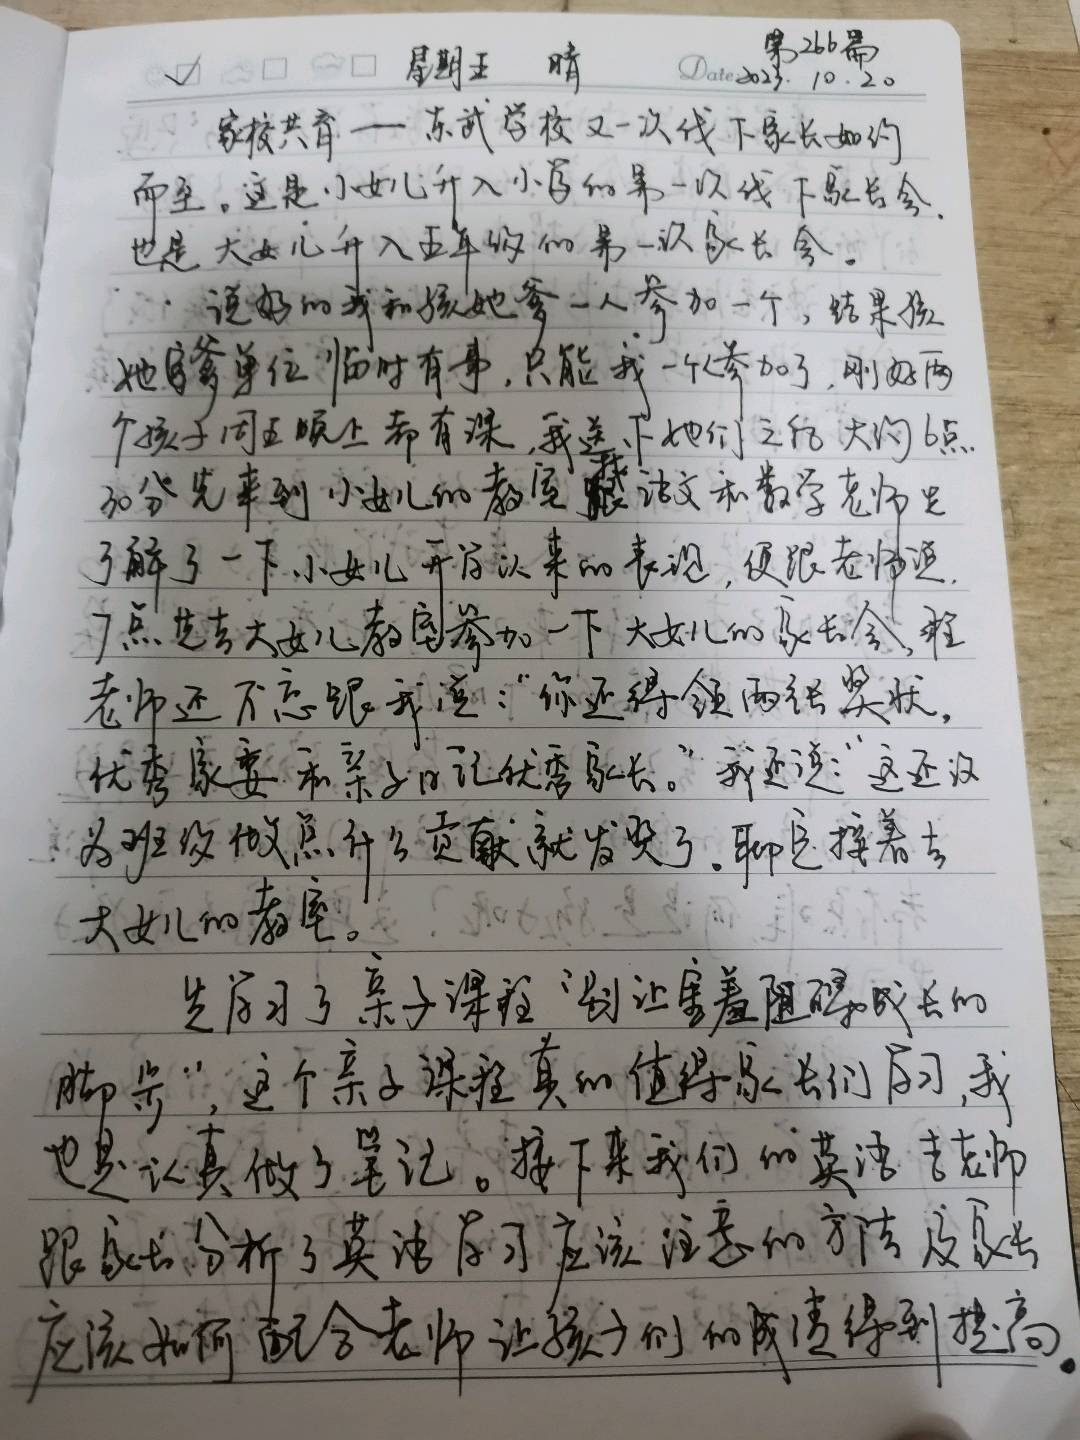 第266篇
星期五 晴 Date 2023.10.20
家校共育——东武学校又一次线下家长如约
而至。这是小女儿升入小学的第一次线下家长会,
也是大女儿升入五年级的第一次家长会。
说好的我和孩她爹一人参加一个,结果孩
她爹单位临时有事,只能我一个人参加了,刚好两
个孩子周五晚上都有课,我送下她们之后大约6点
30分先来到小女儿的教室跟语文和数学老师先
了解了一下小女儿开学以来的表现,便跟老师说,
7点先去大女儿教室参加一下大女儿的家长会,程
老师还不忘跟我说:“你还得领两张奖状,
优秀家委和亲子日记优秀家长。”我还说:“这还没
为班级做点什么贡献就发奖了。聊完接着去
大女儿的教室。
先学习了亲子课程“别让害羞阻碍成长的
脚步”,这个亲子课程真的值得家长们学习,我
也是认真做了笔记。接下来我们的英语老师
跟家长分析了英语学习应该注意的方法及家长
应该如何配合老师让孩子们的成绩得到提高。